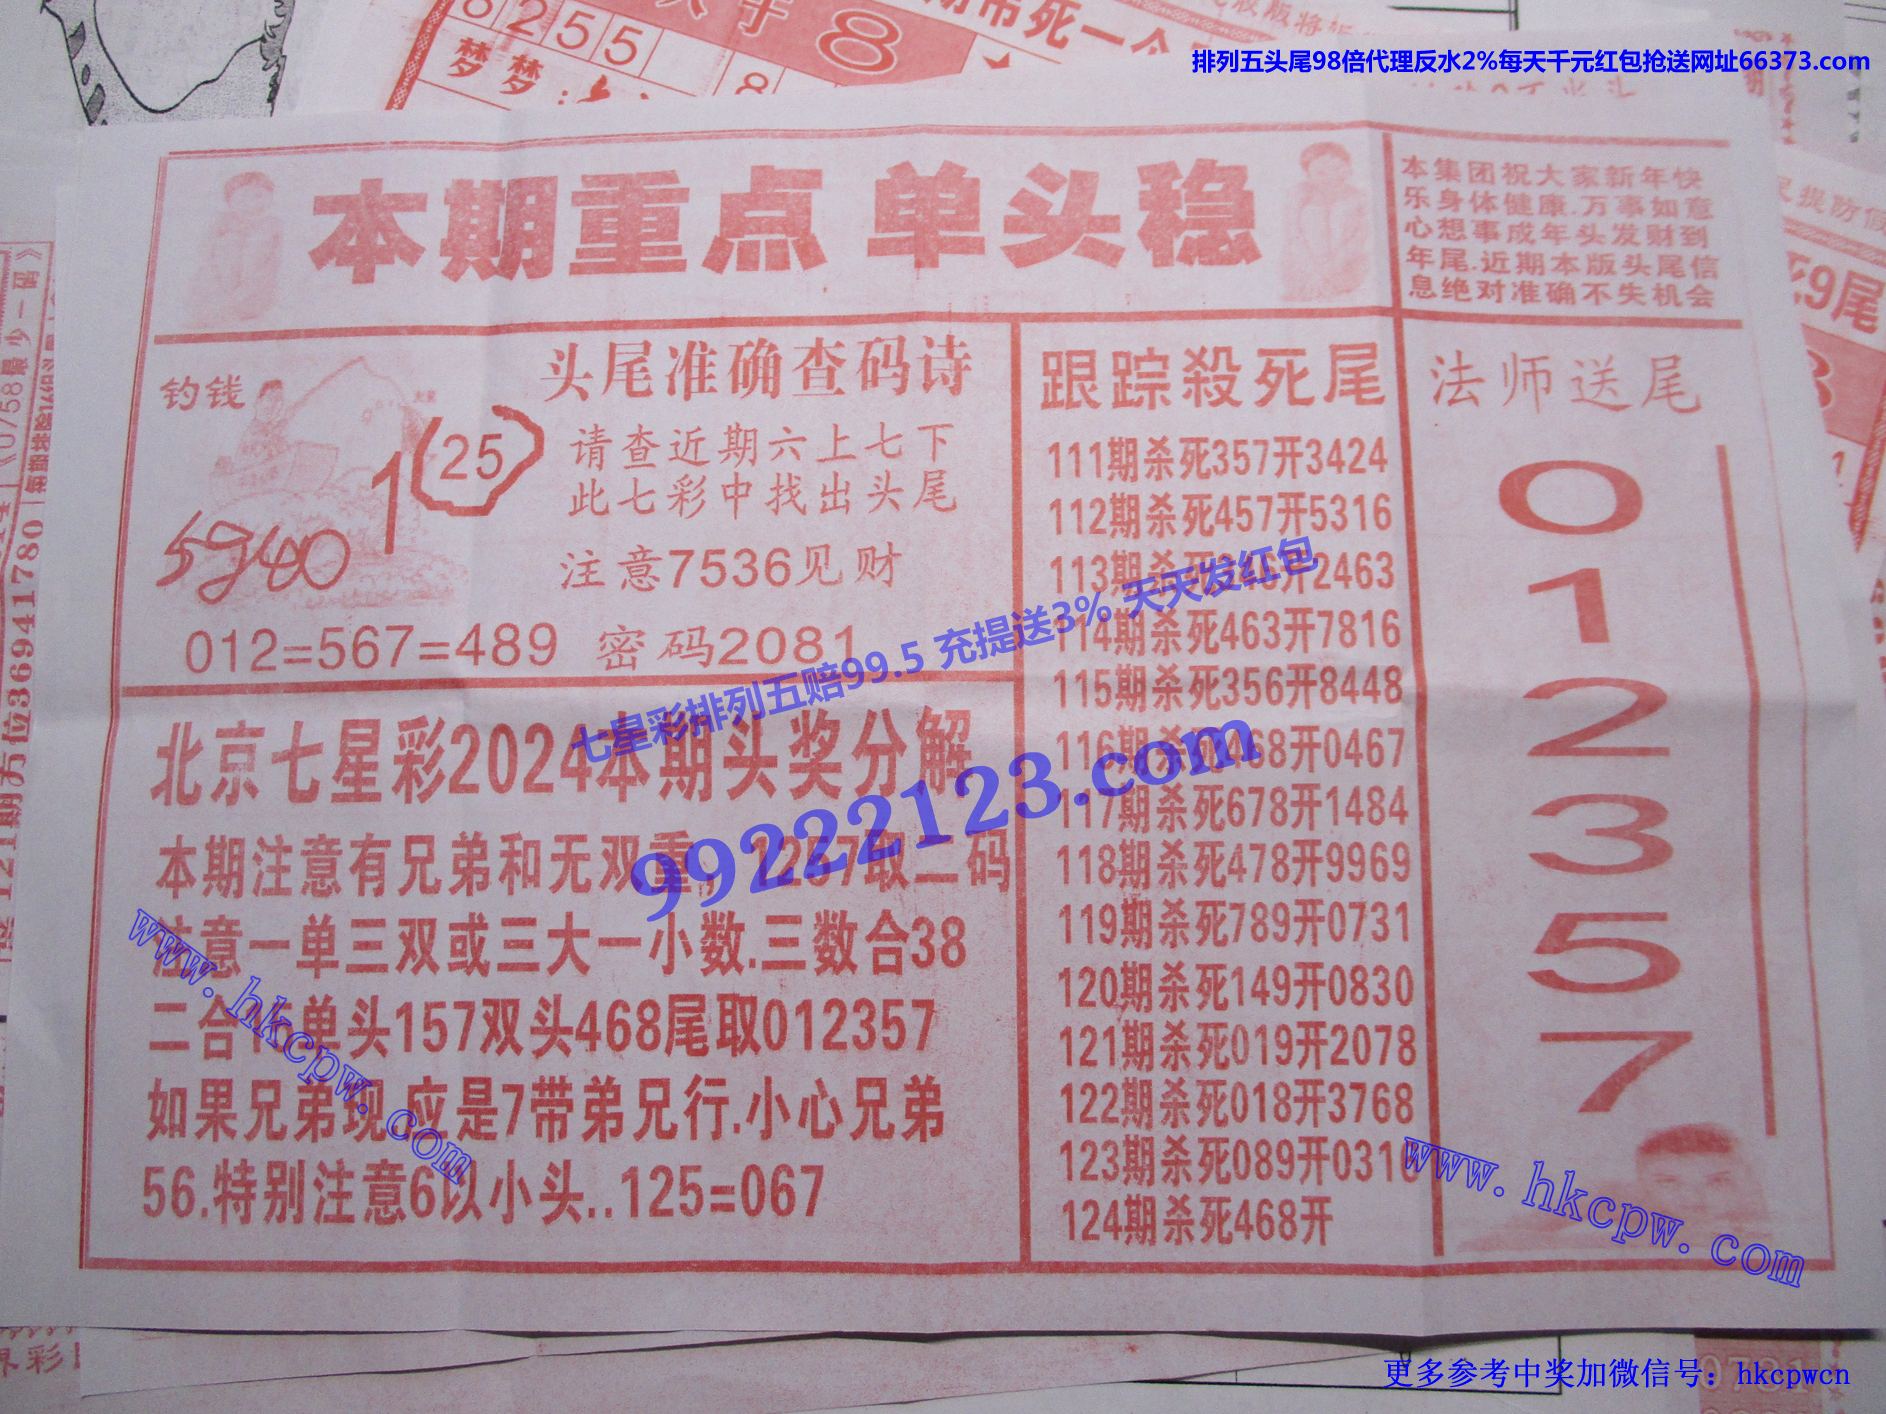 排列五头尾98倍代理反水2%每天千元红包抢送网址66373.com
本期重点 单头稳
本集团祝大家新年快
乐身体健康.万事如意
心想事成年头发财到
年尾.近期本版头尾信
息绝对准确不失机会
钓钱
1
25
5840
头尾准确查码诗
请查近期六上七下
此七彩中找出头尾
注意7536见财
012=567=489 密码2081
北京七星彩2024本期头奖分解
本期注意有兄弟和无双重，1257取二码
注意一单三双或三大一小数.三数合38
二合 单头157双头468尾取012357
如果兄弟现.应是7带弟兄行.小心兄弟
56.特别注意6以小头..125=067
跟踪殺死尾
111期杀死357开3424
112期杀死457开5316
113期杀死 开2463
114期杀死463开7816
115期杀死356开8448
116期杀死468开0467
117期杀死678开1484
118期杀死478开9969
119期杀死789开0731
120期杀死149开0830
121期杀死019开2078
122期杀死018开3768
123期杀死089开031
124期杀死468开
法师送尾
0
1
2
3
5
7
七星彩排列五赔99.5 充提送3% 天天发红包
99222123.com
www.hkcpw.com
www.hkcpw.com
更多参考中奖加微信号：hkcpwcn
8
255
9尾
121期方位3694941780
0731